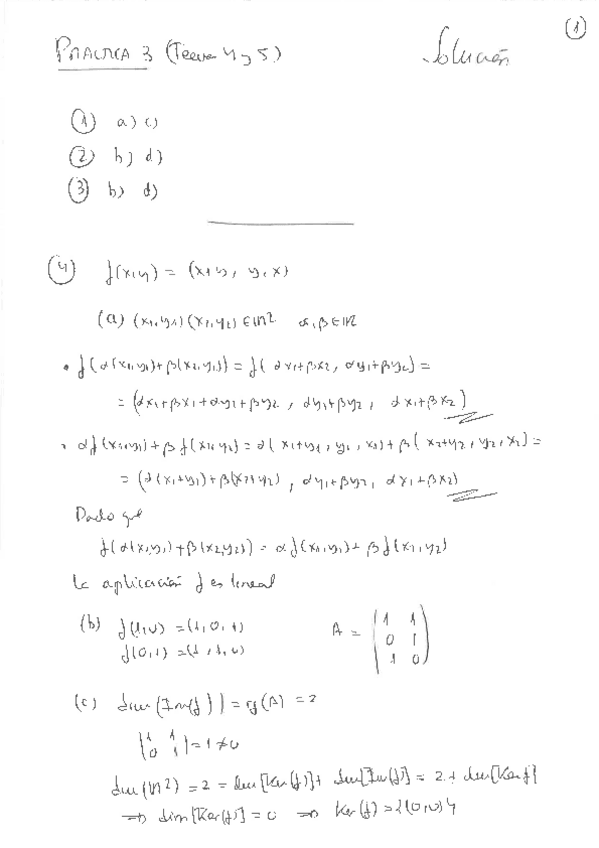 (1)
PRACTICA 3 (Temas 4 y 5) Solución
① a) c)
② b) d)
③ b) d)
④ f(x,y) = (x+y, y, x)
(a) (x₁,y₁) (x₂,y₂) ∈ ℝ² α, β ∈ ℝ
• f(α(x₁,y₁)+β(x₂,y₂)) = f(αx₁+βx₂, αy₁+βy₂) =
= (αx₁+βx₂+αy₁+βy₂, αy₁+βy₂, αx₁+βx₂)
• αf(x₁,y₁)+βf(x₂,y₂) = α(x₁+y₁, y₁, x₁)+β(x₂+y₂, y₂, x₂) =
= (α(x₁+y₁)+β(x₂+y₂), αy₁+βy₂, αx₁+βx₂)
Dado que
f(α(x₁,y₁)+β(x₂,y₂)) = αf(x₁,y₁)+βf(x₂,y₂)
la aplicación f es lineal
(b) f(1,0) = (1,0,1)
f(0,1) = (1,1,0)
A = (1 1
0 1
1 0)
(c) dim(Im(f)) = rg(A) = 2
|1 1
0 1| = 1 ≠ 0
dim(ℝ²) = 2 = dim[Ker(f)] + dim[Im(f)] = 2 + dim[Ker f]
⇒ dim[Ker(f)] = 0 ⇒ Ker(f) = {(0,0)}